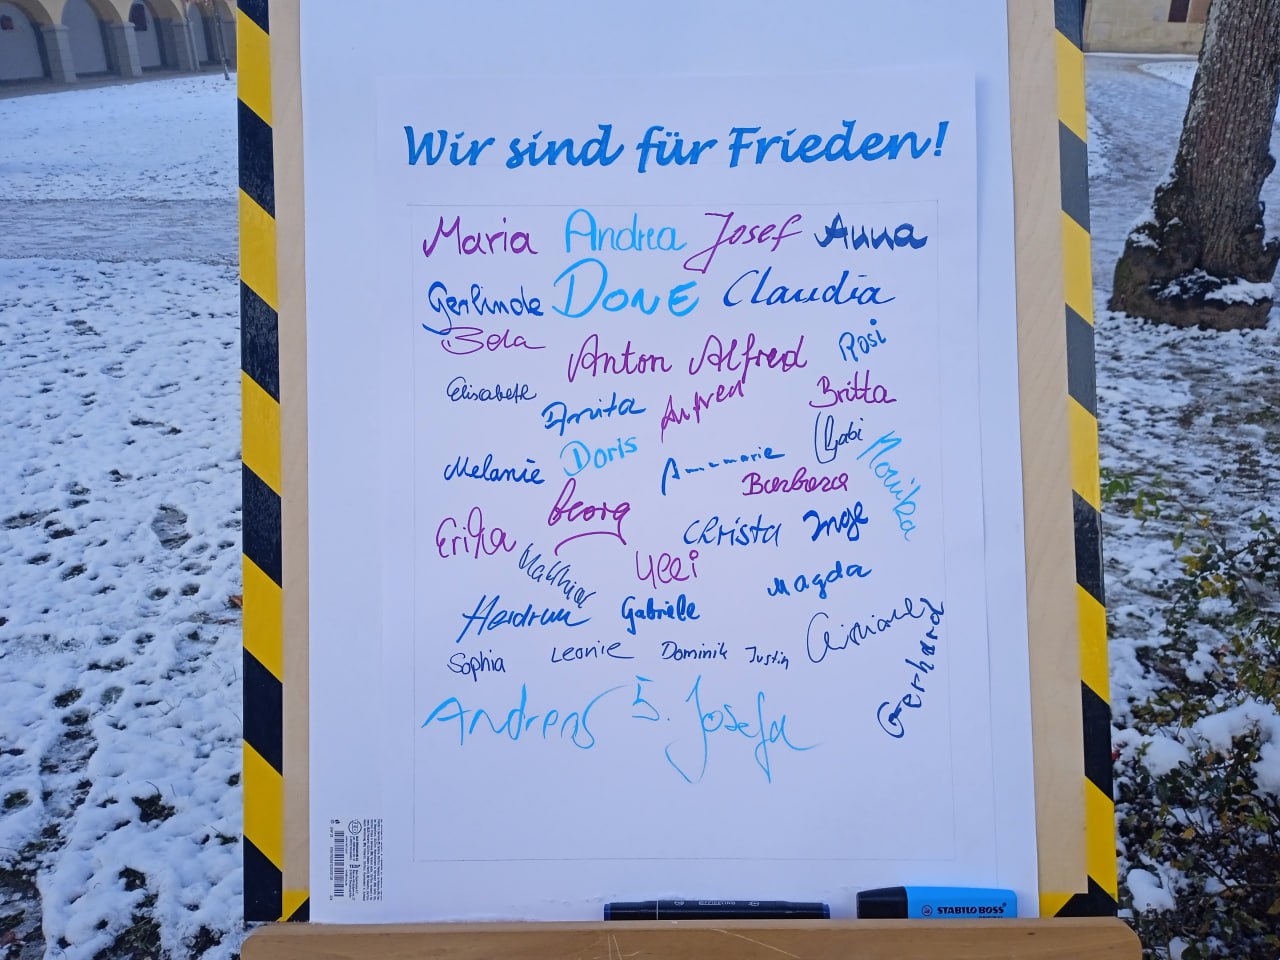 Wir sind für Frieden!
Maria Andrea Josef Anna
Gerlinde DONE Claudia
Bela Anton Alfred Rosi
Elisabeth Anita Alfred Britta
Melanie Doris Annemarie Gabi Monika
Barbara
Erika Georg Christa Inge
Matthias Ulli Magda
Heidrun Gabriele
Sophia Leonie Dominik Justin Christiane Gerhard
Andreas S. Josefa
STABILO BOSS